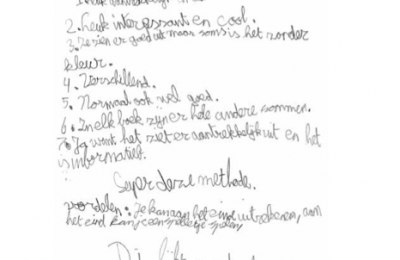 2. Leuk interessant en cool.
3. Ze zien er goed uit maar soms is het zonder
kleur.
4. Verschillend.
5. Normaal ook wel goed.
6. In elk boek zijn er hele andere sommen.
7. Ja want het ziet er aantrekkelijk uit en het
is informatief.
Super deze methode.
voordelen: je kan aan het eind uitrekenen, aan
het eind kan je een spelletje spelen,